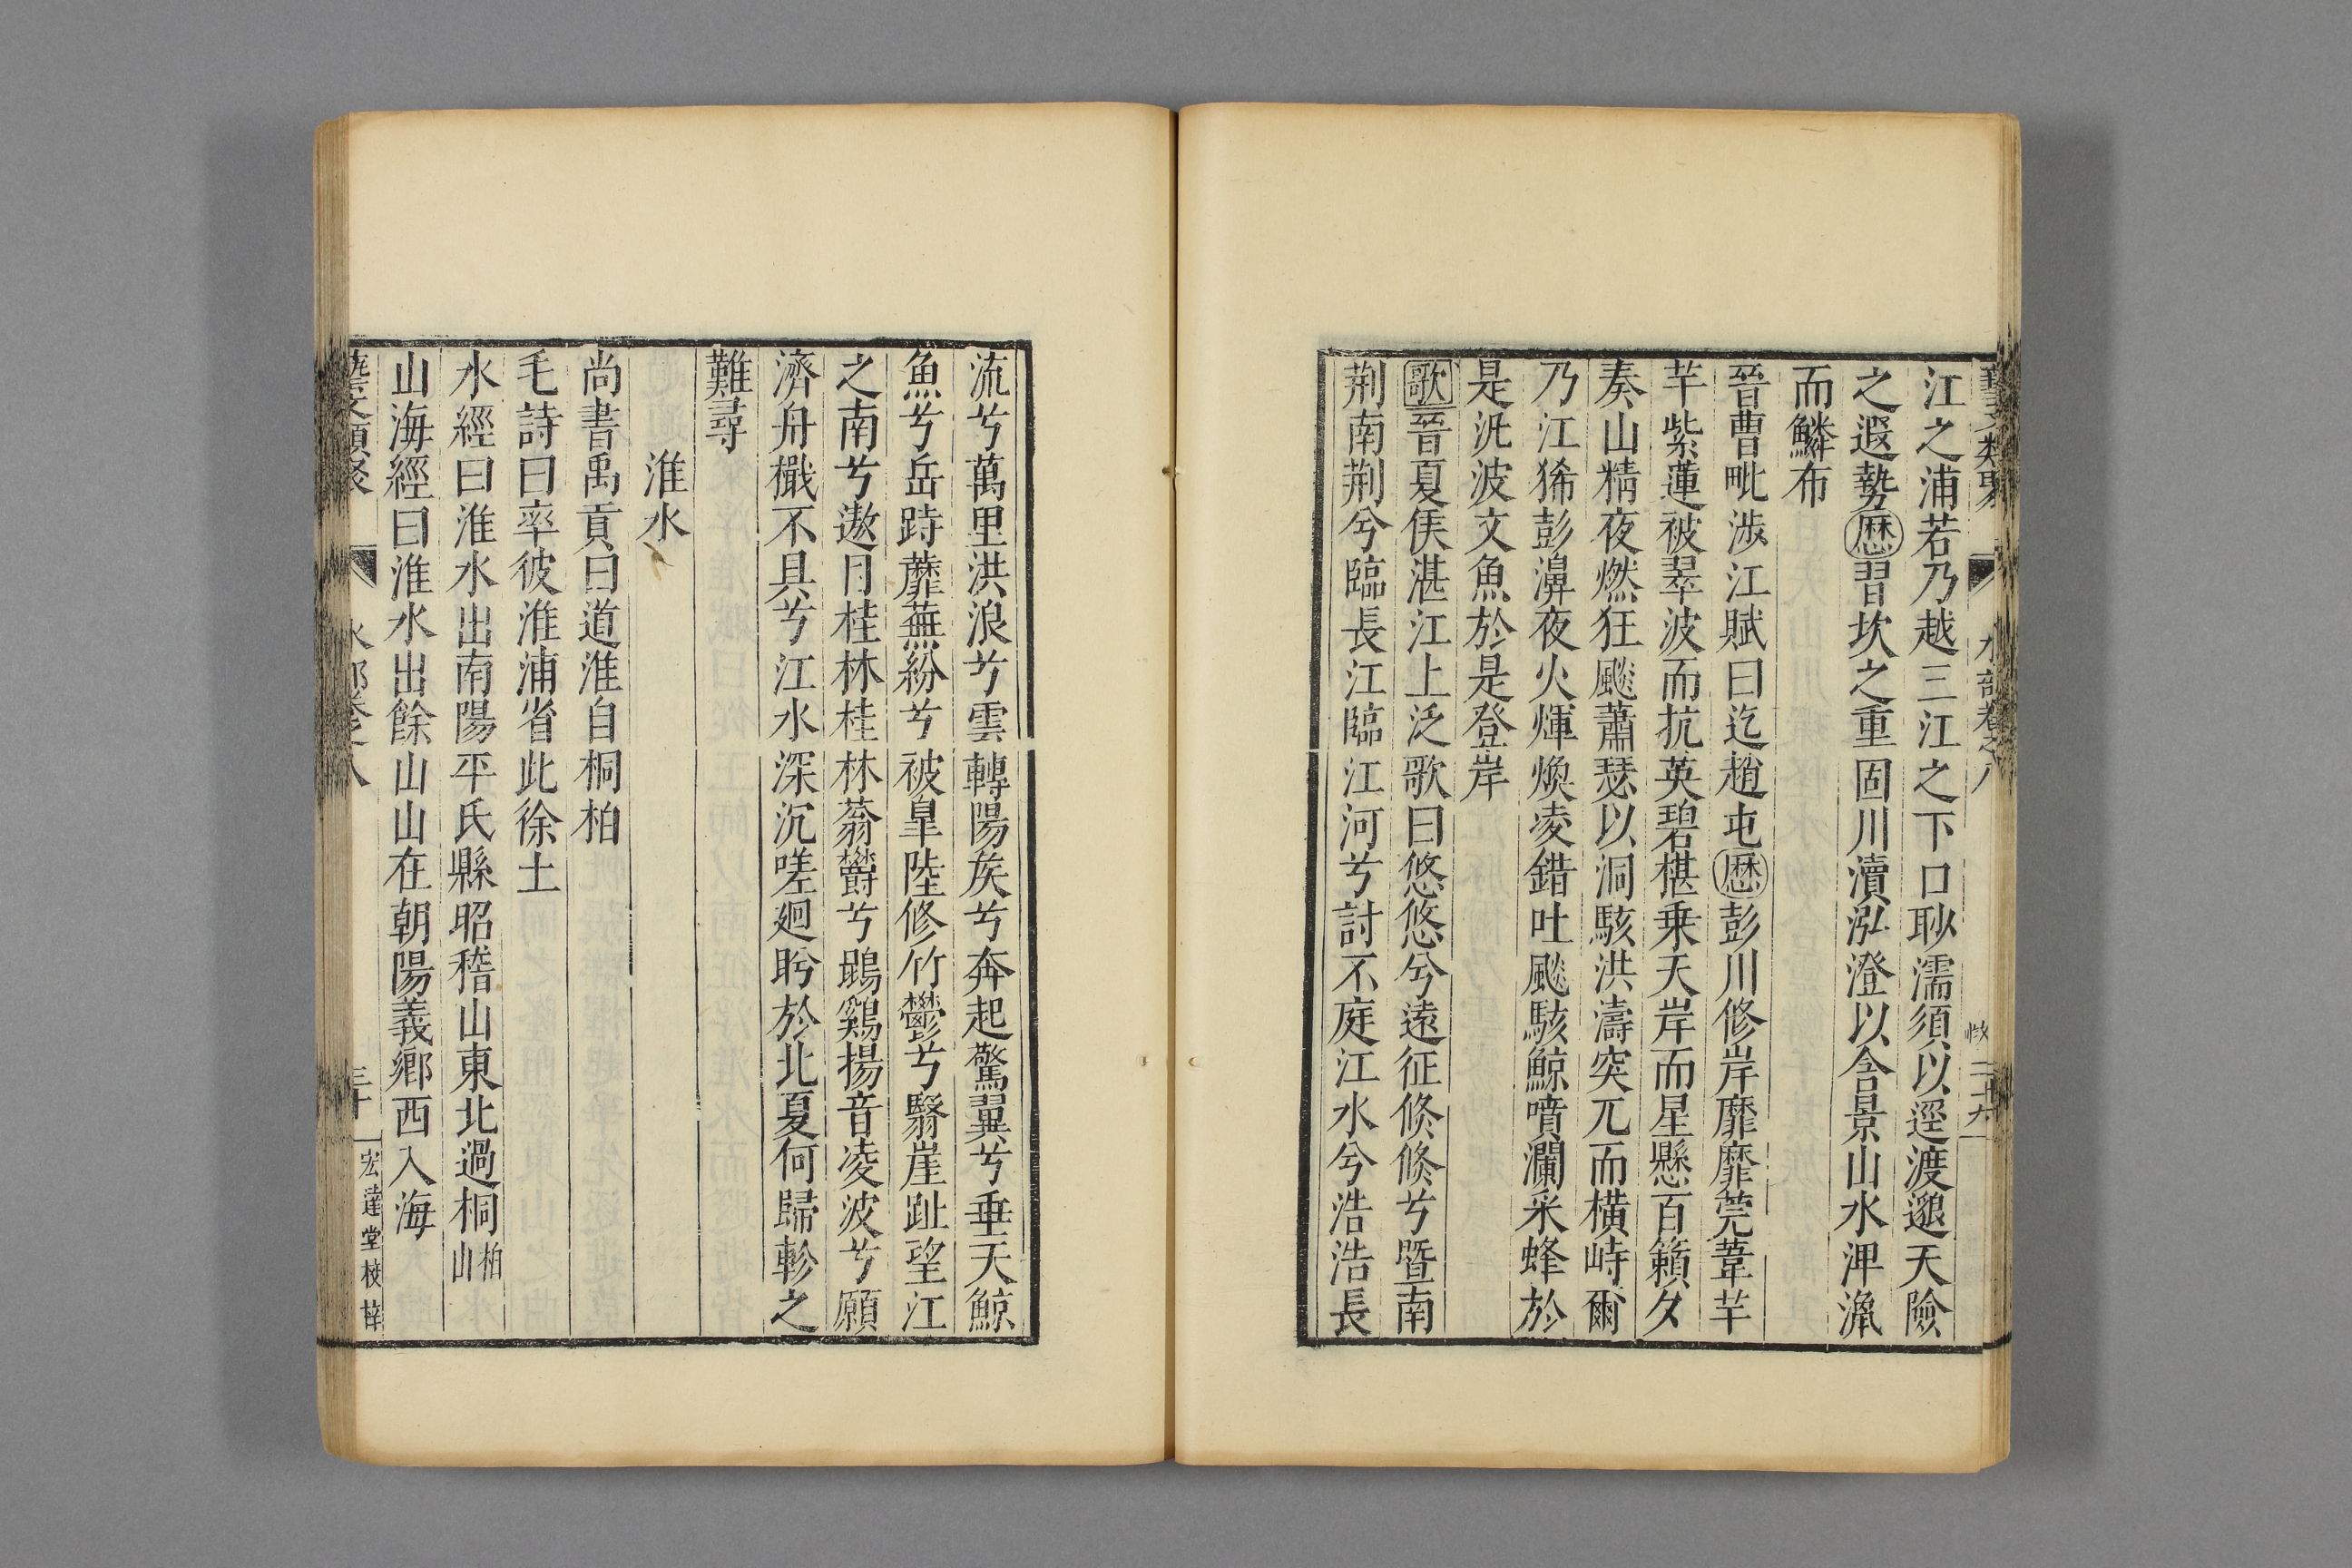 藝文類聚 水部卷之八 二十九
江之浦若乃越三江之下口眇濡須以逕渡邈天險
之遐勢歷習坎之重固川瀆泓澄以含景山水浬漁
而鱗布
晉曹毗涉江賦曰迄趙屯歷彭川修岸靡靡莞葦芊
芊紫蓮被翠波而抗英碧椹乗天岸而星懸百籟夕
奏山精夜燃狂飈蕭瑟以洞駭洪濤突兀而橫峙爾
乃江狶彭濞夜火煇煥凌錯吐飈駭鯨噴瀾采蜂於
是汎波文魚於是登岸
歌晉夏侯湛江上泛歌曰悠悠兮遠征倏倏兮暨南
荆南荆兮臨長江臨江河兮討不庭江水兮浩浩長
流兮萬里洪浪兮雲轉陽矦兮奔起驚翼兮垂天鯨
魚兮岳跱蘼蕪紛兮被臯陸修竹鬱兮翳崖趾望江
之南兮遨目桂林桂林蓊鬱兮鵾鷄揚音凌波兮願
濟舟檝不具兮江水深沉嗟廻盻於北夏何歸軫之
難尋
淮水
尚書禹貢曰道淮自桐柏
毛詩曰率彼淮浦省此徐土
水經曰淮水出南陽平氏縣昭稽山東北過桐柏山
山海經曰淮水出餘山山在朝陽義鄉西入海
藝文類聚 水部卷之八 三十 宏達堂校梓